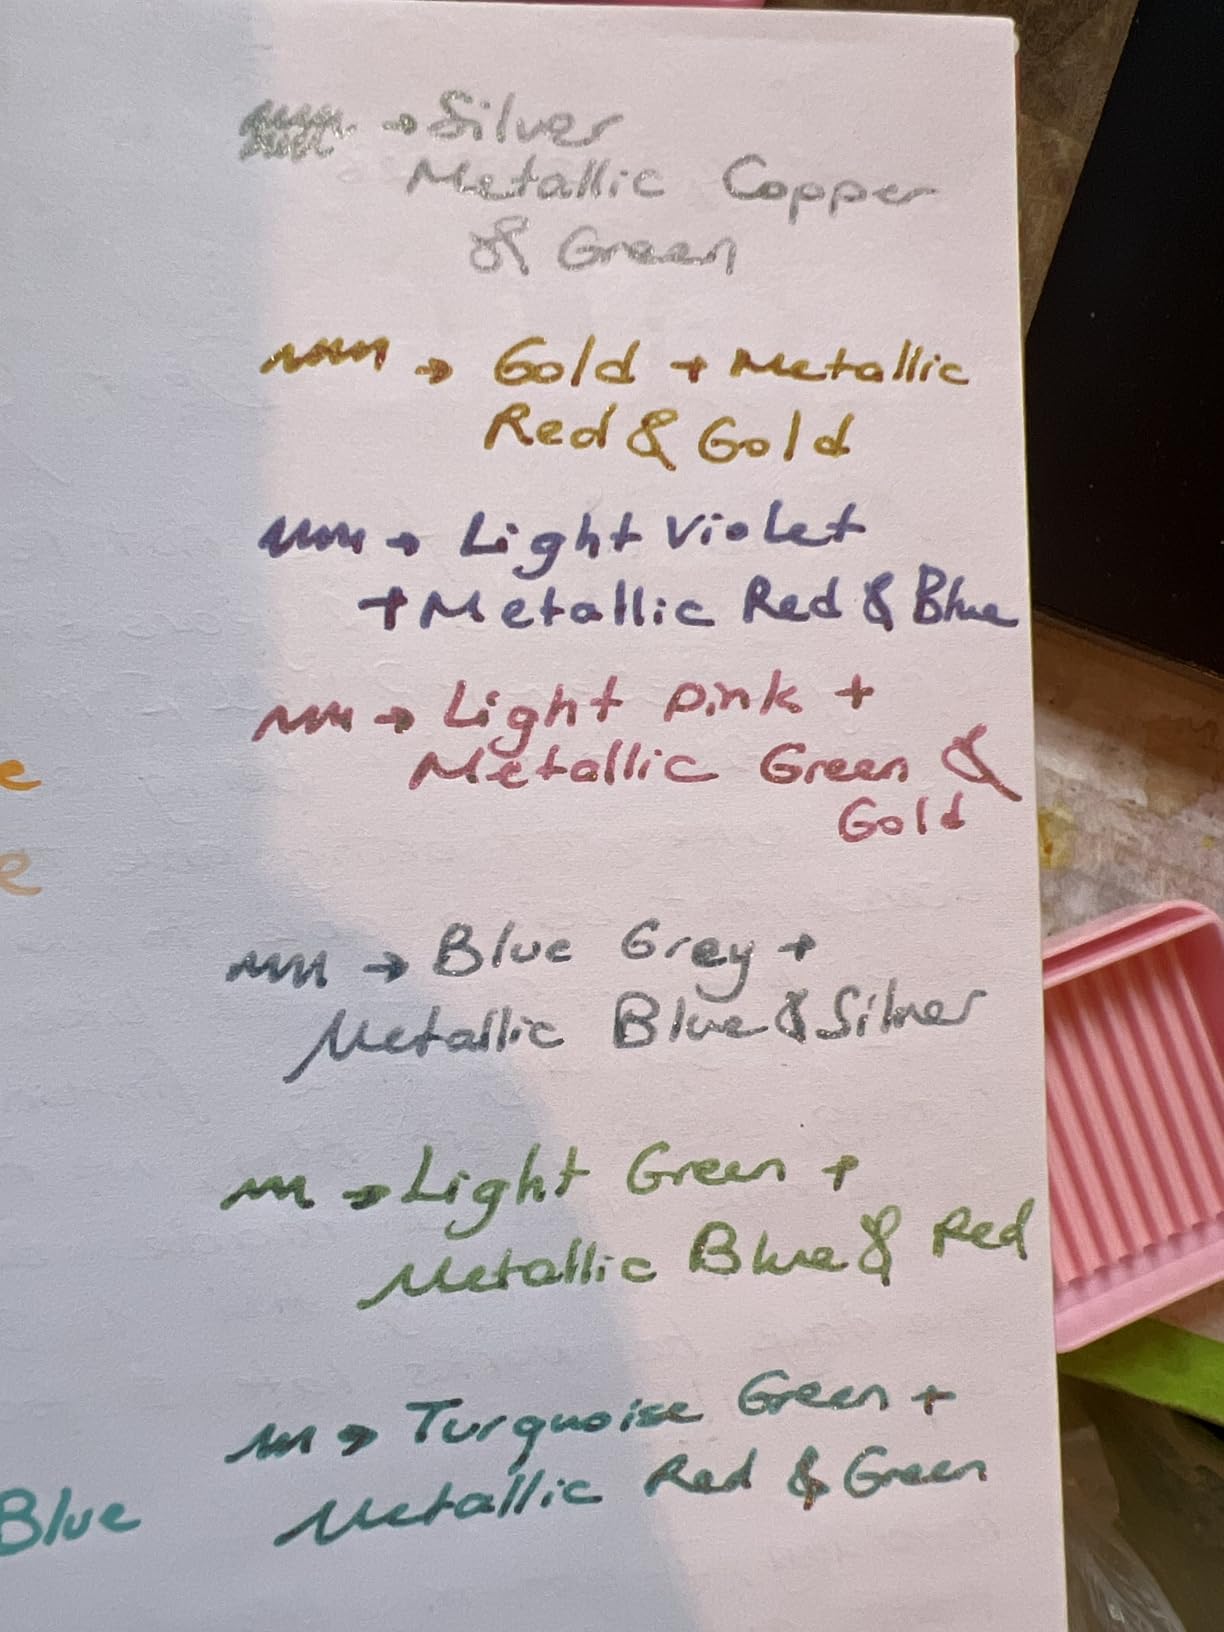 → Silver
Metallic Copper
& Green
→ Gold + Metallic
Red & Gold
→ Light Violet
+ Metallic Red & Blue
→ Light Pink +
Metallic Green &
Gold
e
e
→ Blue Grey +
Metallic Blue & Silver
→ Light Green +
Metallic Blue & Red
→ Turquoise Green +
Metallic Red & Green
Blue